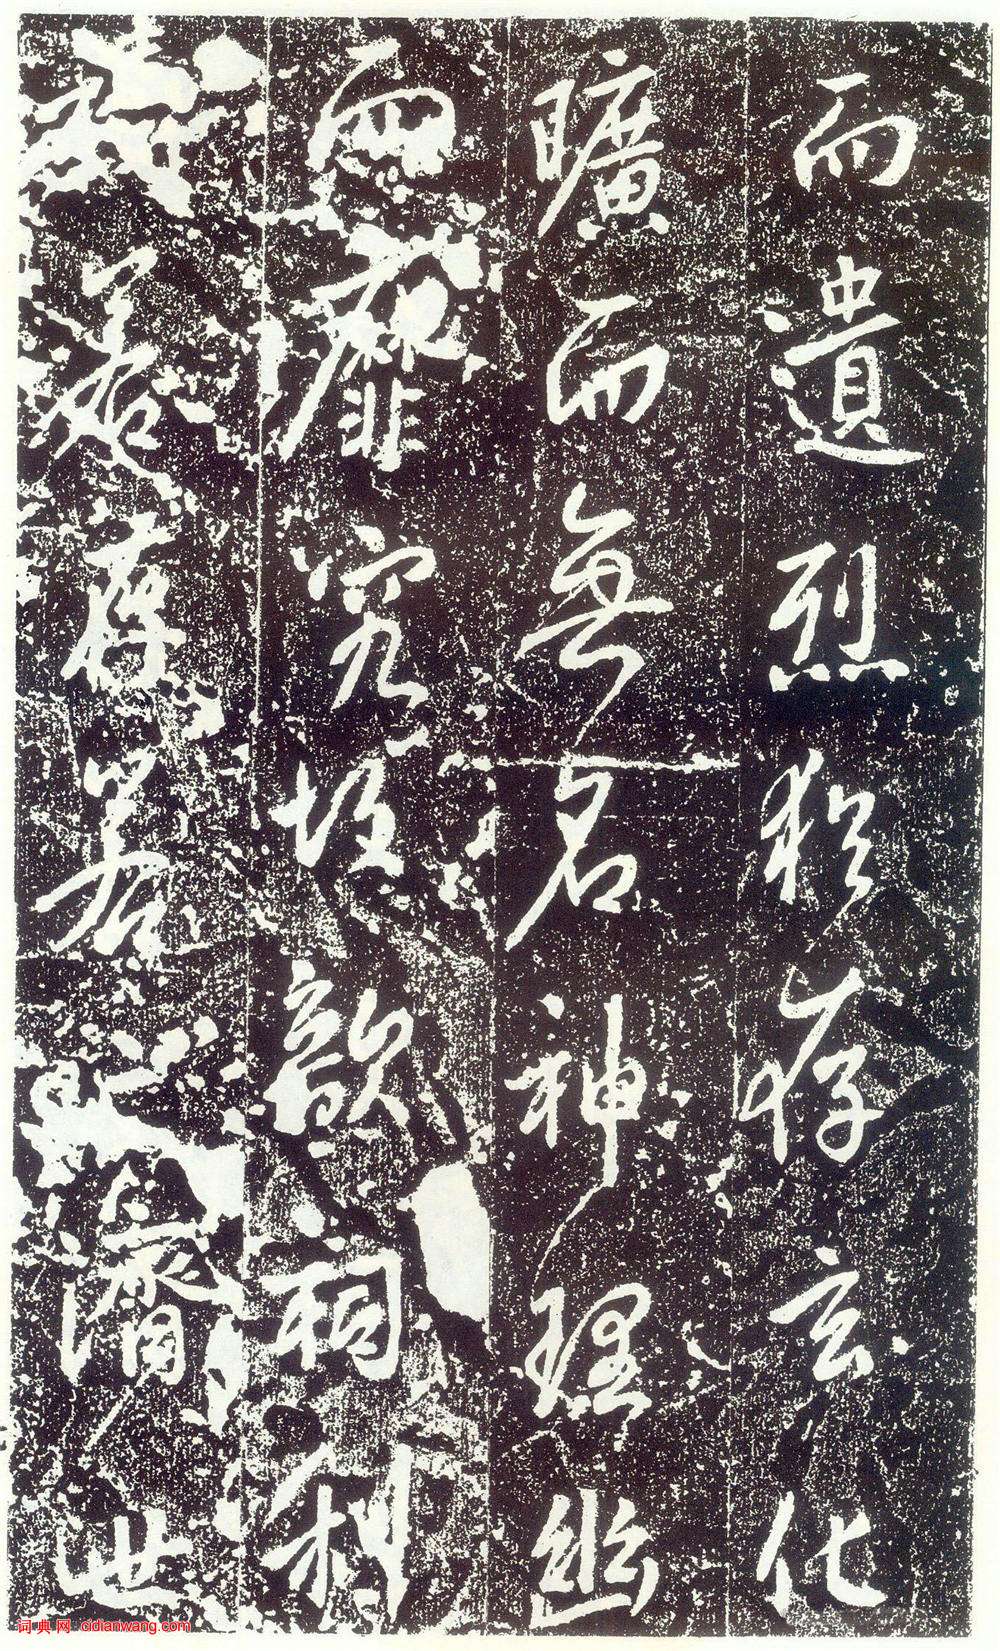 而遺烈猶存玄化
曠而無名神理幽
而靡究故歆祠利
禱若存若亡濟世
词典网 cidianwang.com